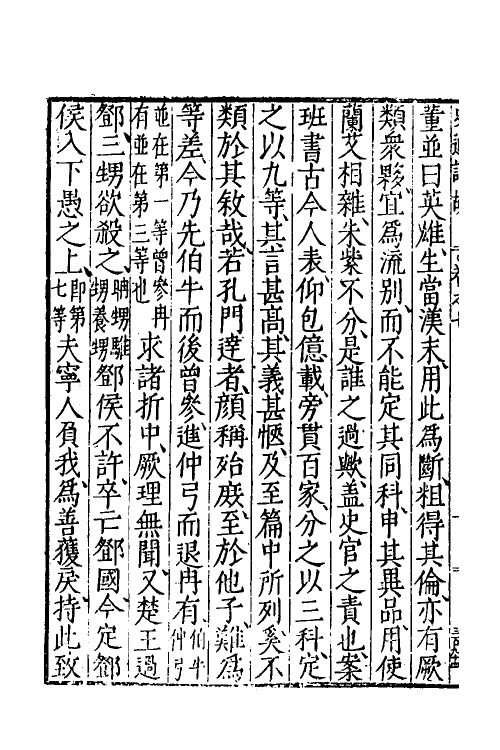 董並曰英雄生當漢末用此為斷粗得其倫亦有厥
類衆夥宜為流别而不能定其同科申其異品用使
蘭艾相雜朱紫不分是誰之過歟盖史官之責也案
班書古今人表仰包億載旁貫百家分之以三科定
之以九等其言甚高其義甚愜及至篇中所列奚不
類於其敘哉若孔門達者顔稱殆庶至於他子難為
等差今乃先伯牛而後曾參進仲弓而退冉有伯牛仲弓
並在第一等曾參冉有並在第三等也求諸折中厥理無聞又楚王過
鄧三甥欲殺之騅甥聃甥養甥鄧侯不許卒亡鄧國今定鄧
侯入下愚之上即第七等夫寧人負我為善獲戾持此致